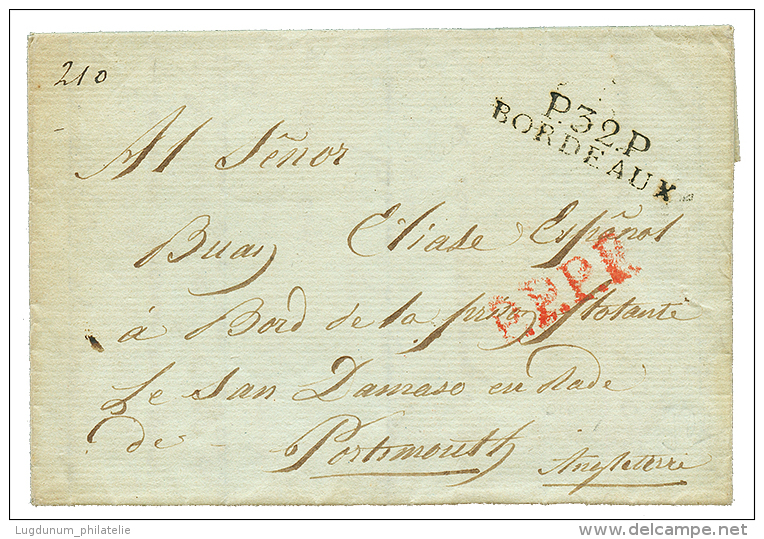 210
P.32.P
BORDEAUX
Al Señor
Eliade Español
P.2.P.P.
à Bord de la prison flotante
Le San Damaso en Rade
de Portsmouth
Angleterre
Lugdunum_philatelie
delcampe.net